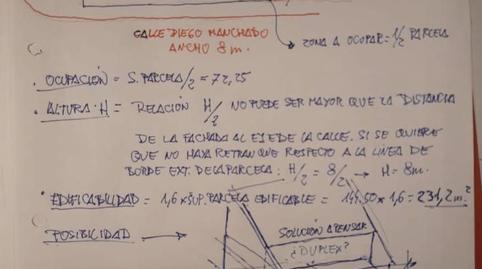 CALLE DIEGO MANCHADO
ANCHO 8m.
ZONA A OCUPAR = 1/2 PARCELA
• OCUPACIÓN = S. PARCELA/2 = 72,25
• ALTURA: H = RELACIÓN H/2 NO PUEDE SER MAYOR QUE LA DISTANCIA
DE LA FACHADA AL EJE DE LA CALLE. SI SE QUIERE
QUE NO HAYA RETRANQUE RESPECTO A LA LÍNEA DE
BORDE EXT. DE LA PARCELA: H/2 = 8/2 → H = 8m.
• EDIFICABILIDAD = 1,6 x SUP. PARCELA EDIFICABLE = 144.50 x 1,6 = 231,2 m²
POSIBILIDAD →
SOLUCIÓN A PENSAR
¿DUPLEX?